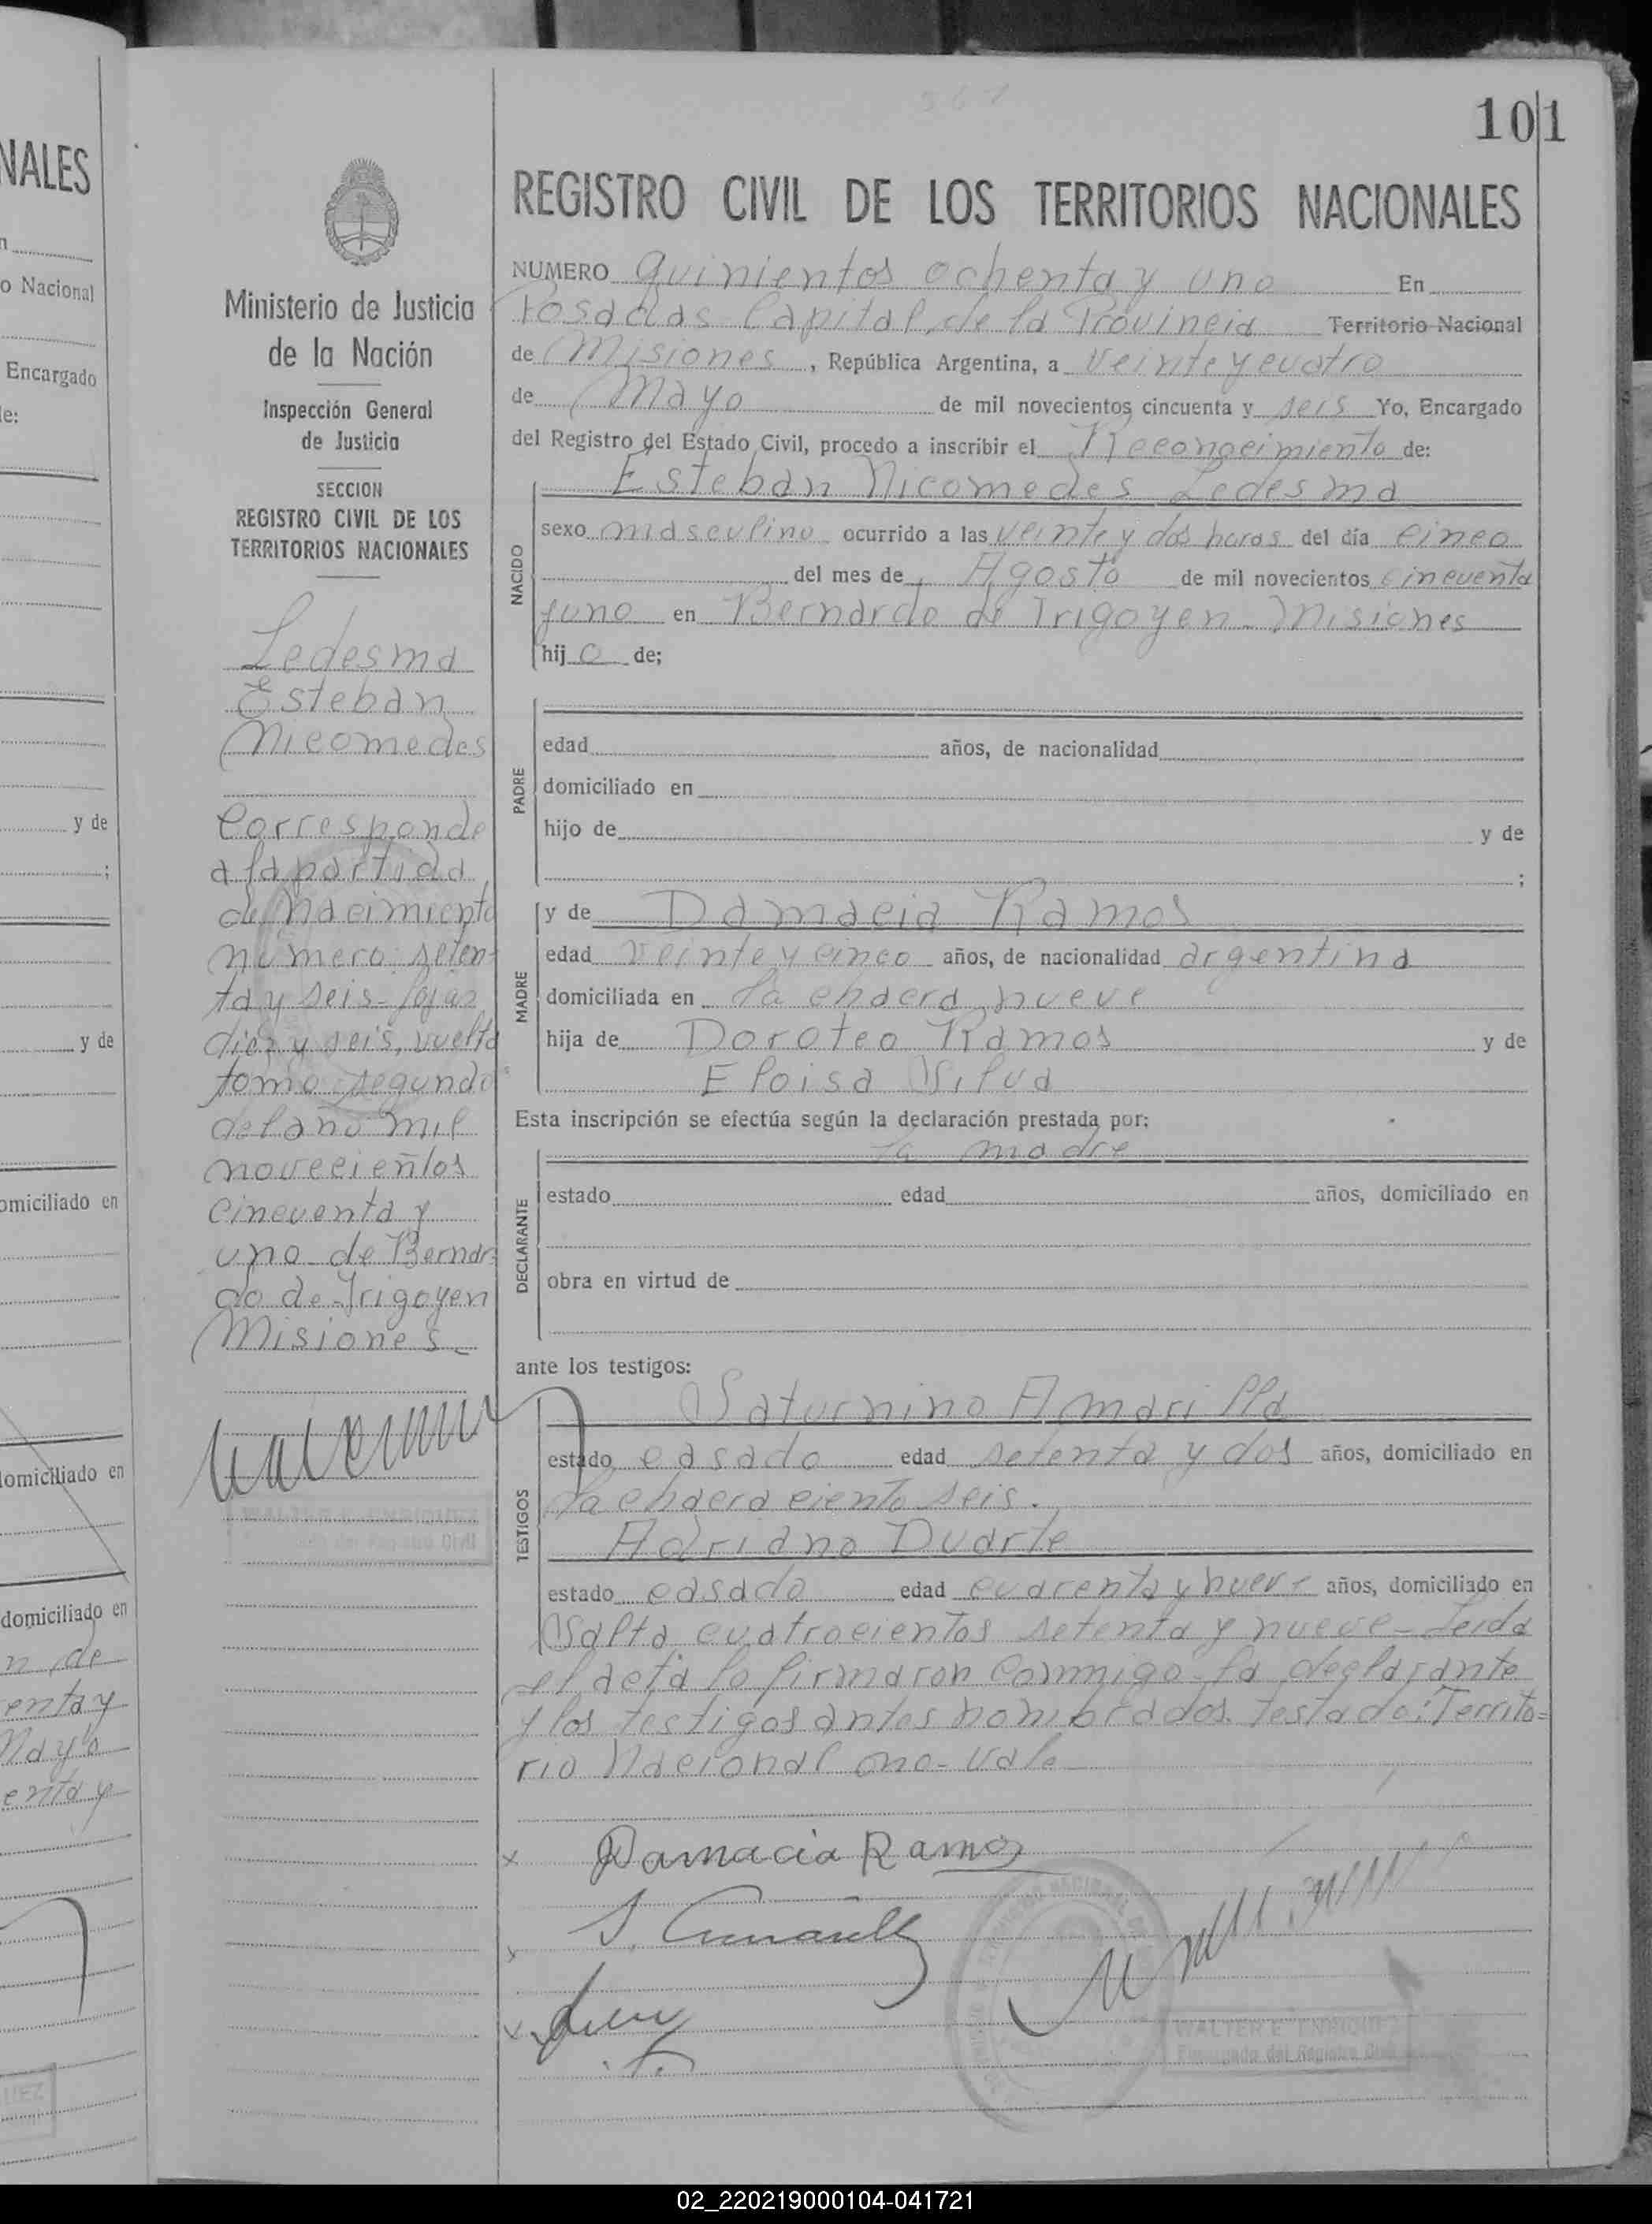 101
REGISTRO CIVIL DE LOS TERRITORIOS NACIONALES
NUMERO quinientos ochenta y uno En
Posadas Capital de la Provincia Territorio Nacional
de Misiones, República Argentina, a veinte y cuatro
de Mayo de mil novecientos cincuenta y seis Yo, Encargado
del Registro del Estado Civil, procedo a inscribir el Reconocimiento de:
Esteban Nicomedes Ledesma
NACIDO
sexo masculino ocurrido a las veinte y dos horas del día cinco
del mes de Agosto de mil novecientos cincuenta
y uno en Bernardo de Irigoyen - Misiones
hij o de;
PADRE
edad años, de nacionalidad
domiciliado en
hijo de y de
;
MADRE
y de Damacia Ramos
edad veinte y cinco años, de nacionalidad argentina
domiciliada en la chacra nueve
hija de Doroteo Ramos y de
Eloisa Silva
Esta inscripción se efectúa según la declaración prestada por:
la madre
DECLARANTE
estado edad años, domiciliado en
obra en virtud de
ante los testigos:
TESTIGOS
Saturnino Amarilla
estado casado edad setenta y dos años, domiciliado en
la chacra ciento seis.
Adriano Duarte
estado casado edad cuarenta y nueve años, domiciliado en
Salta cuatrocientos setenta y nueve - Leida
el acta la firmaron conmigo la declarante
y los testigos antes nombrados. Testado: Territo=
rio Nacional - no - vale
x Damacia Ramos
x S. Amarilla
x
WALTER E. ENRIQUEZ
Encargado del Registro Civil
Ministerio de Justicia
de la Nación
Inspección General
de Justicia
SECCION
REGISTRO CIVIL DE LOS
TERRITORIOS NACIONALES
Ledesma
Esteban
Nicomedes
Corresponde
a la partida
de Nacimiento
número seten-
ta y seis - fojas
diez y seis, vuelta
tomo segundo
del año mil
novecientos
cincuenta y
uno - de Bernar-
do de Irigoyen
Misiones -
NALES
o Nacional
Encargado
le:
y de
;
y de
omiciliado en
domiciliado en
domiciliado en
n de
enta y
Mayo
enta y
UEZ
02_220219000104-041721